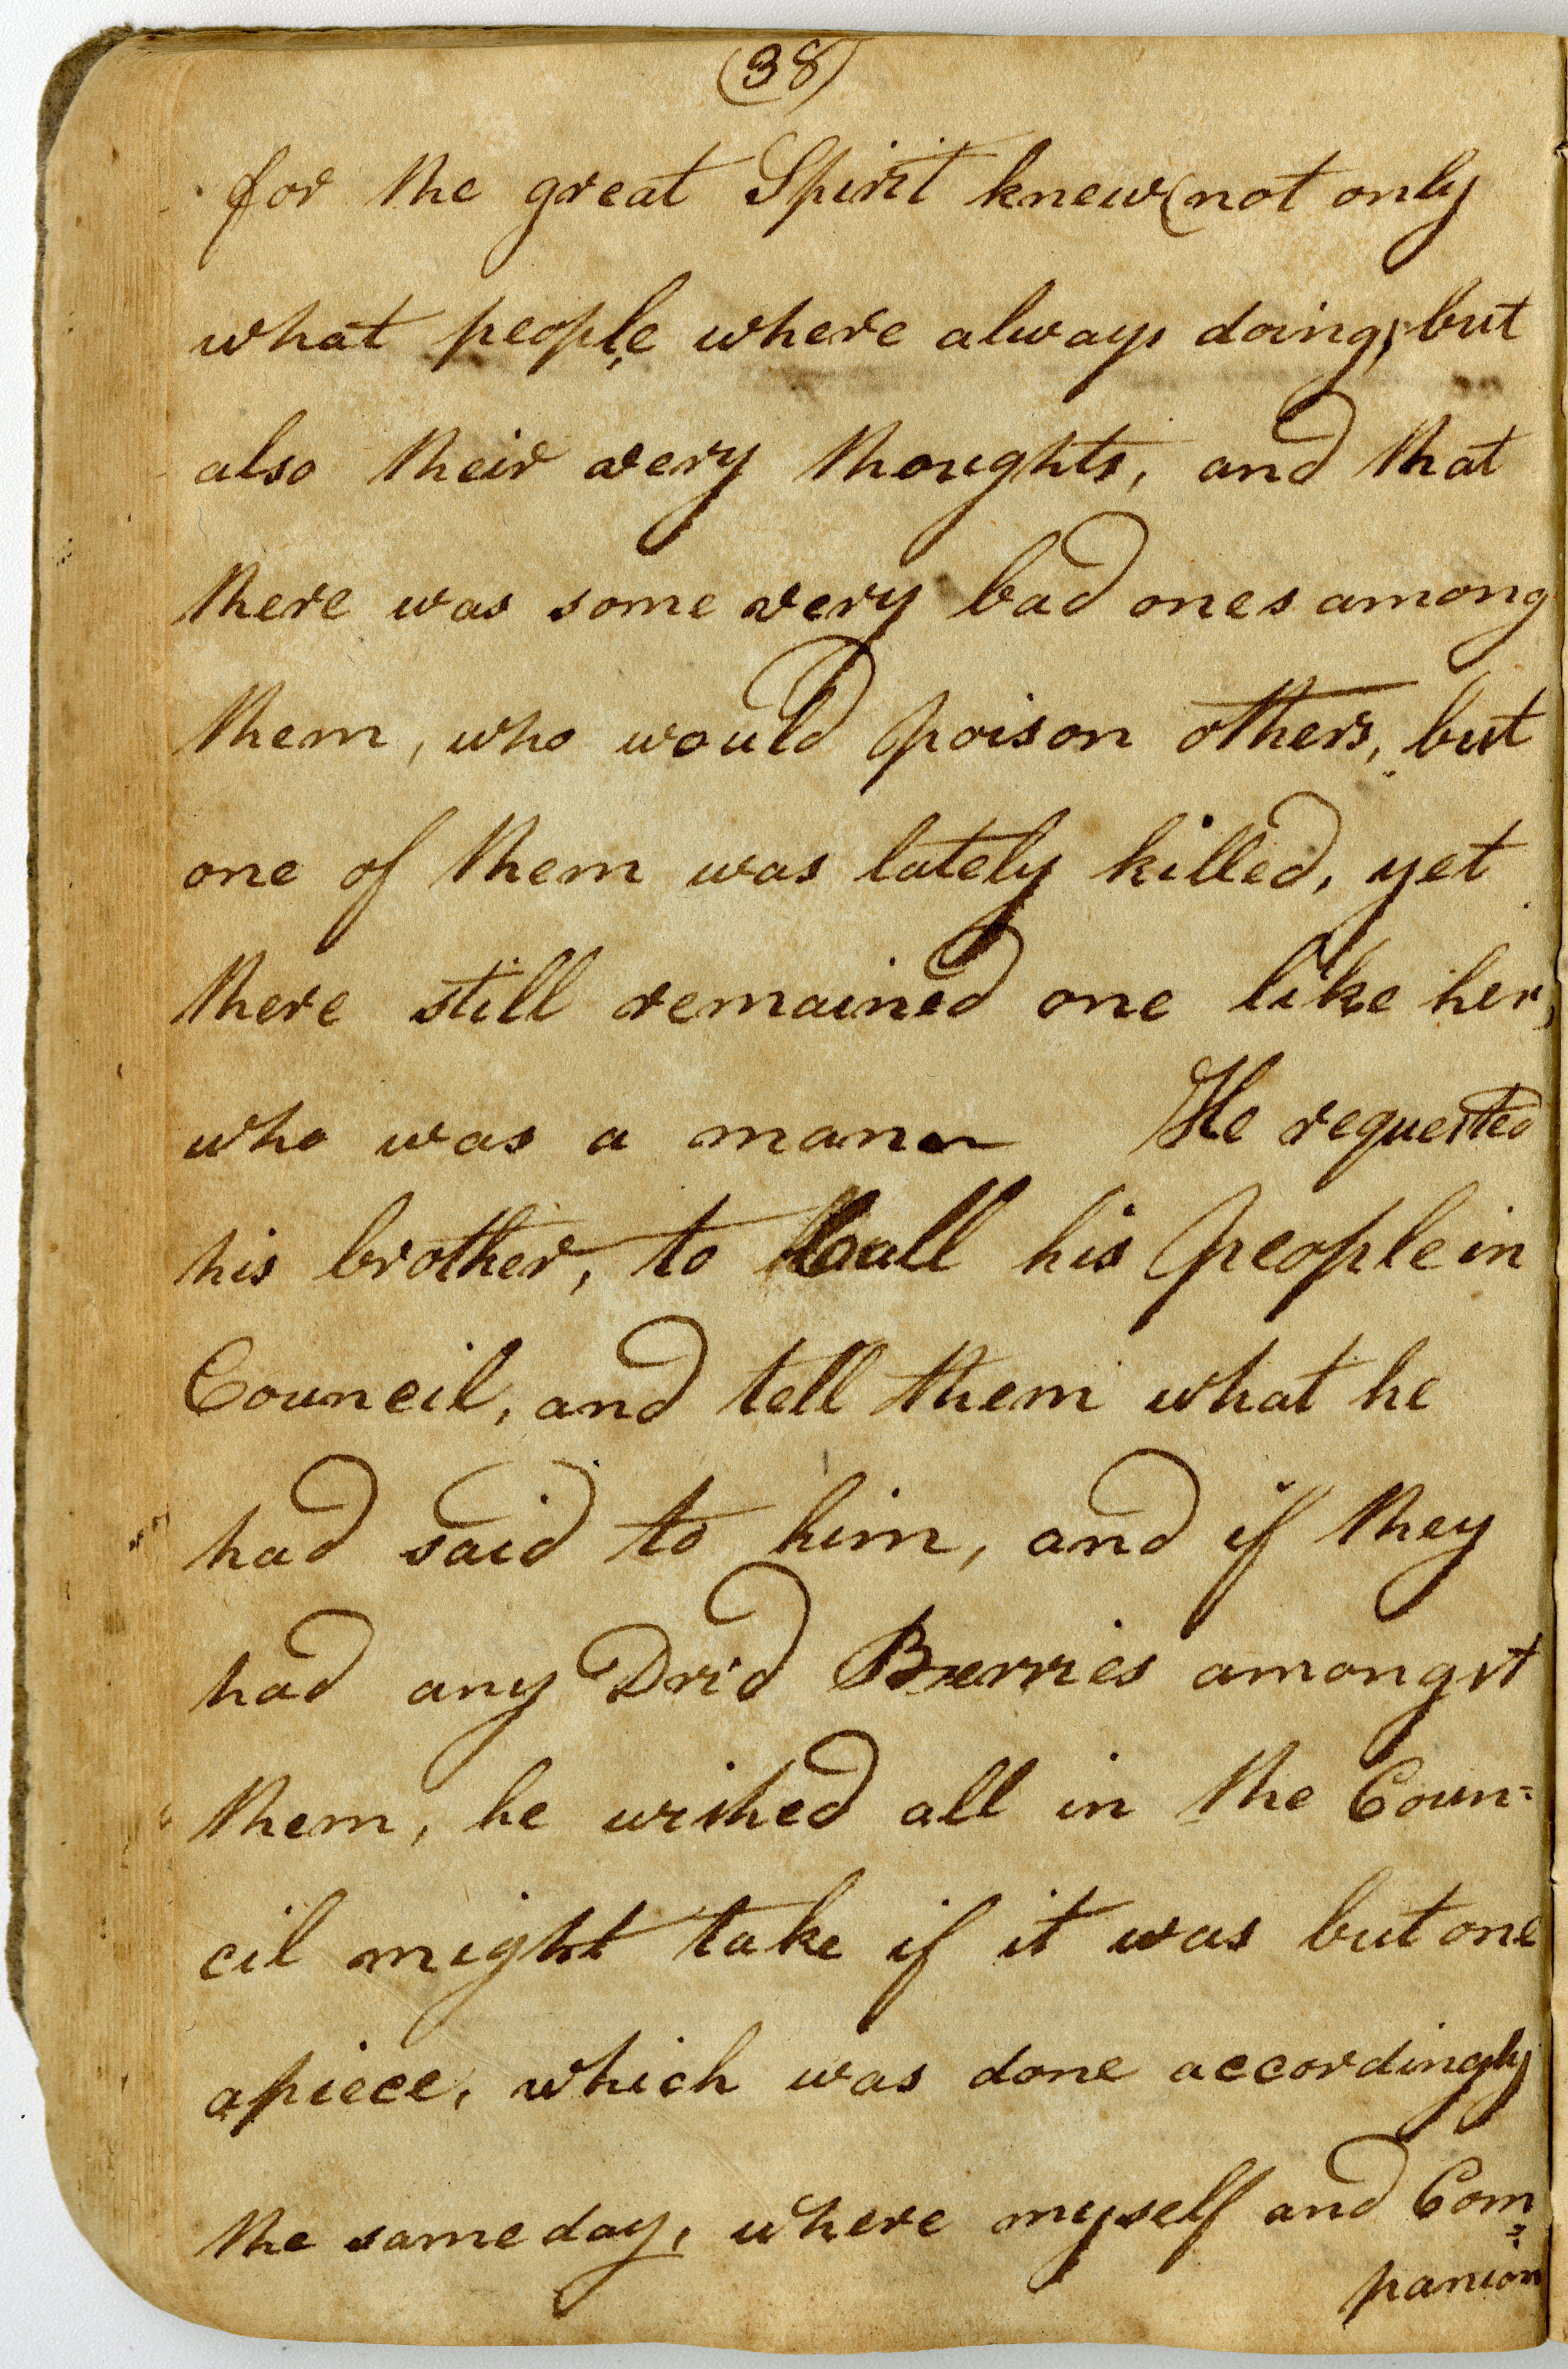 (38)
for the great Spirit knew (not only
what people where always doing, but
also their very thoughts, and that
there was some very bad ones among
them, who would poison others, but
one of them was lately killed, yet
there still remained one like her,
who was a man He requested
his brother, to Call his people in
Council, and tell them what he
had said to him, and if they
had any Drid Berries amongst
them, he wished all in the Coun=
cil might take if it was but one
apiece, which was done accordingly
the same day, where myself and Com=
panion